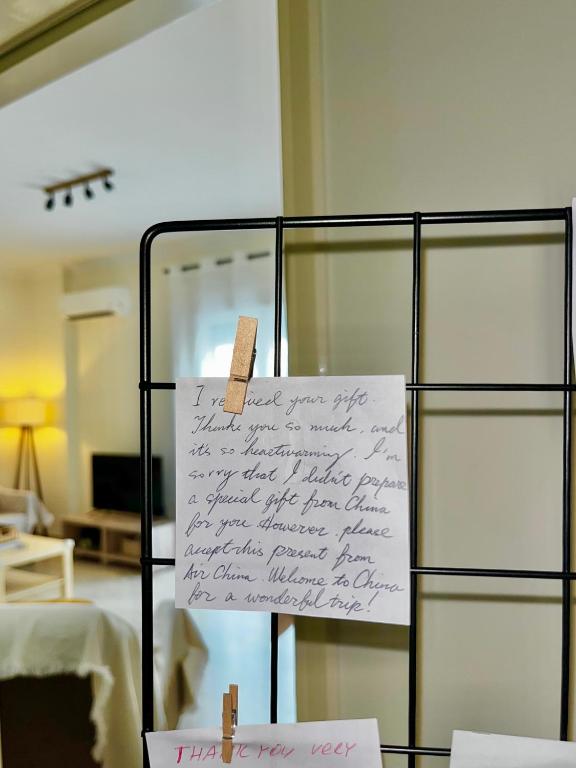 I received your gift.
Thank you so much, and
it's so heartwarming. I'm
sorry that I didn't prepare
a special gift from China
for you. However, please
accept this present from
Air China. Welcome to China
for a wonderful trip!
THANK YOU VERY